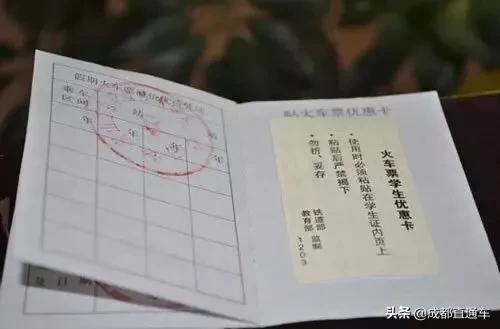 假期火车票减价优待凭证
乘车
区间
站
年
年
年
年
及日期
贴火车票优惠卡
火车票学生优惠卡
• 使用时必须粘贴在学生证内页上
• 粘贴后严禁揭下
• 勿折、妥存
铁道部
教育部
监制
1203
头条 @成都直通车